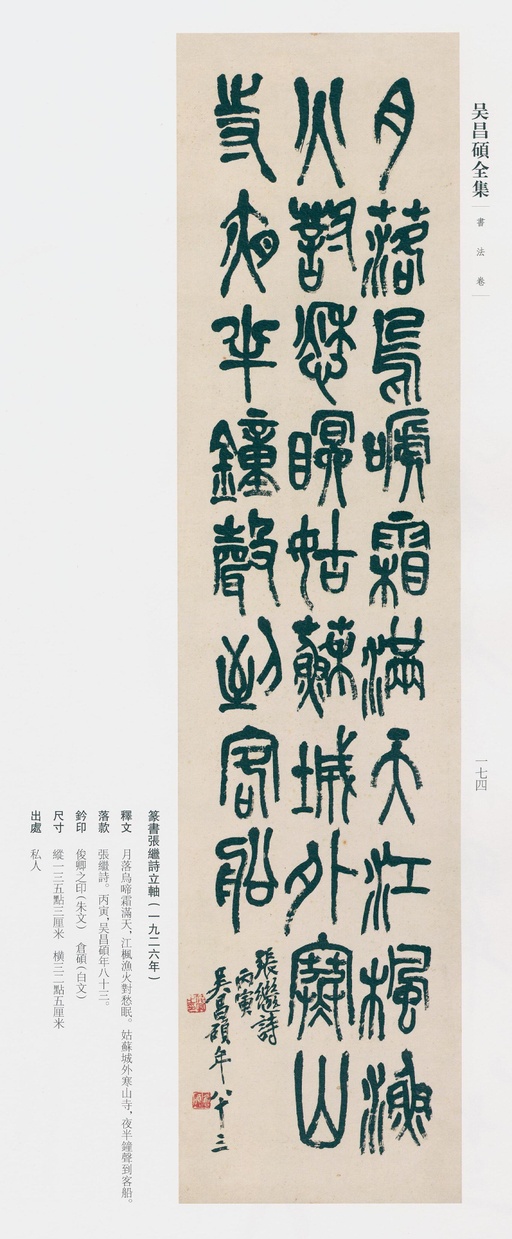 吴昌碩全集
書法卷
一七四
月落烏啼霜滿天江楓漁
火對愁眠姑蘇城外寒山
寺夜半鐘聲到客船
張繼詩
丙寅
吴昌碩年八十三
篆書張繼詩立軸（一九二六年）
釋文　月落烏啼霜滿天，江楓漁火對愁眠。姑蘇城外寒山寺，夜半鐘聲到客船。
落款　張繼詩。丙寅，吴昌碩年八十三。
鈐印　俊卿之印（朱文）　倉碩（白文）
尺寸　縱一三五點三厘米　橫三二點五厘米
出處　私人